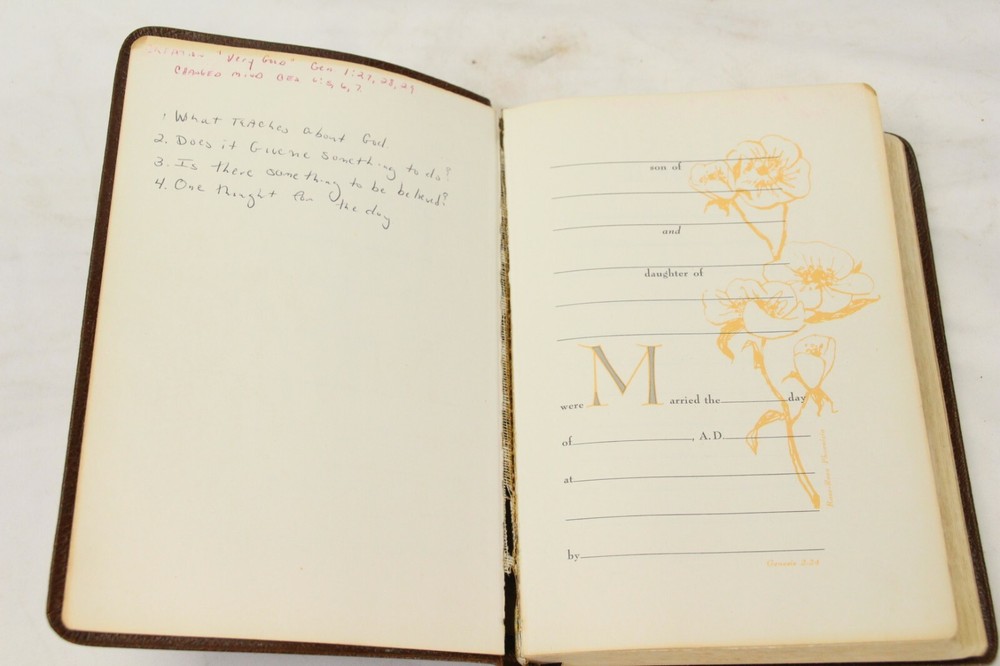 "Very Good" Gen. 1:27, 28, 29
CHANGED MIND GEN 6:5, 6, 7
1 What TeAches about God
2. Does it Guene something to do?
3. Is there something to be believed?
4. One thought for the day
son of
and
daughter of
were Married the day
of , A.D.
at
by
Genesis 2:24